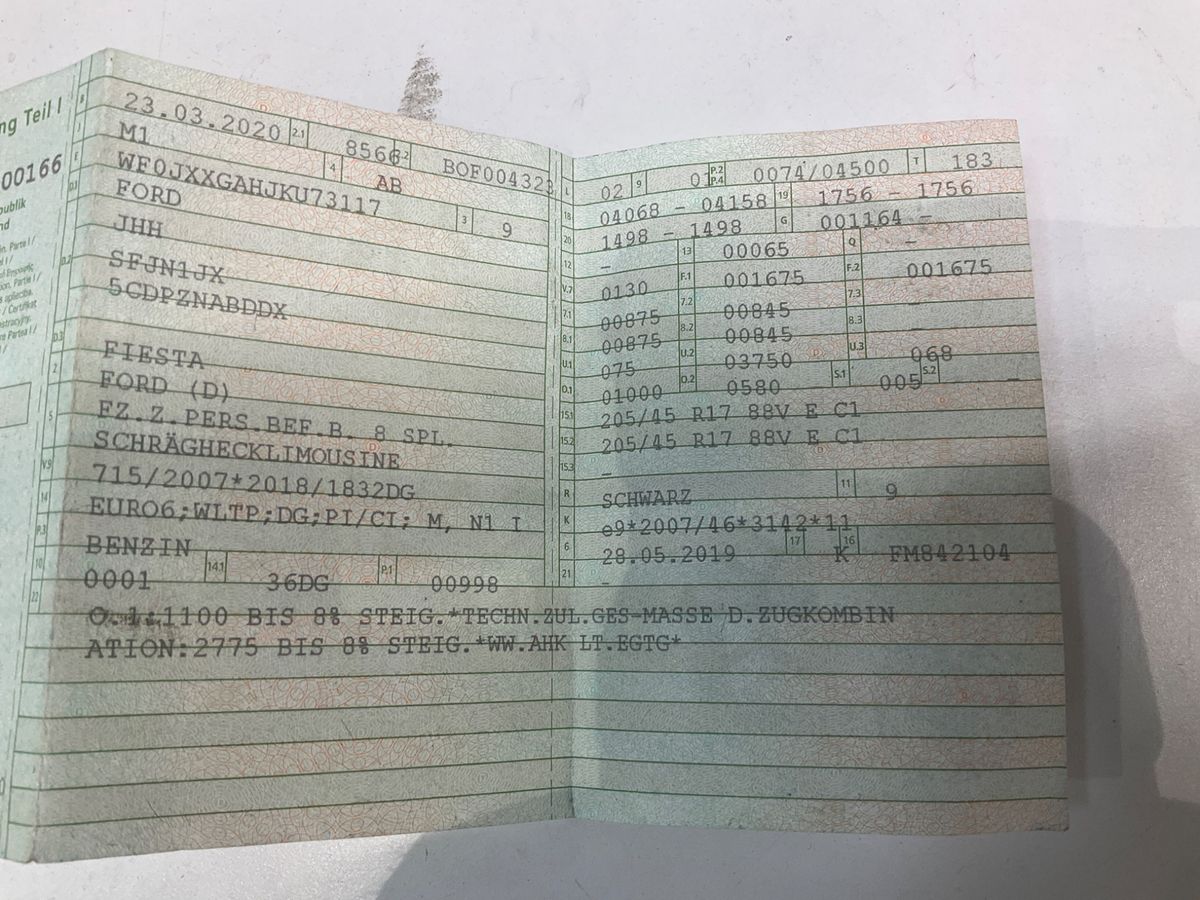 ng Teil I
00166
publik
nd
B 23.03.2020 2.1 8566 2.2 BOF004323
J M1 4 AB
E WF0JXXGAHJKU73117 3 9
D.1 FORD
JHH
D.2 SFJN1JX
5CDPZNABDDX
D.3 FIESTA
2 FORD (D)
5 FZ.Z.PERS.BEF.B. 8 SPL.
SCHRÄGHECKLIMOUSINE
V.9 715/2007*2018/1832DG
14 EURO6;WLTP;DG;PI/CI; M, N1 I
P.3 BENZIN
10 0001 14.1 36DG P.1 00998
L 02 9 01 P.2 P.4 0074/04500 T 183
18 04068 - 04158 19 1756 - 1756
20 1498 - 1498 G 001164 -
12 - 13 00065 Q -
V.7 0130 F.1 001675 F.2 001675
7.1 00875 7.2 00845 7.3 -
8.1 00875 8.2 00845 8.3 -
U.1 075 U.2 03750 U.3 068
O.1 01000 O.2 0580 S.1 005 S.2 -
15.1 205/45 R17 88V E C1
15.2 205/45 R17 88V E C1
15.3 -
R SCHWARZ 11 9
K e9*2007/46*3142*11
6 28.05.2019 17 K 16 FM842104
21 -
22 O.1:1100 BIS 8% STEIG.*TECHN.ZUL.GES-MASSE D.ZUGKOMBIN
ATION:2775 BIS 8% STEIG.*WW.AHK LT.EGTG*